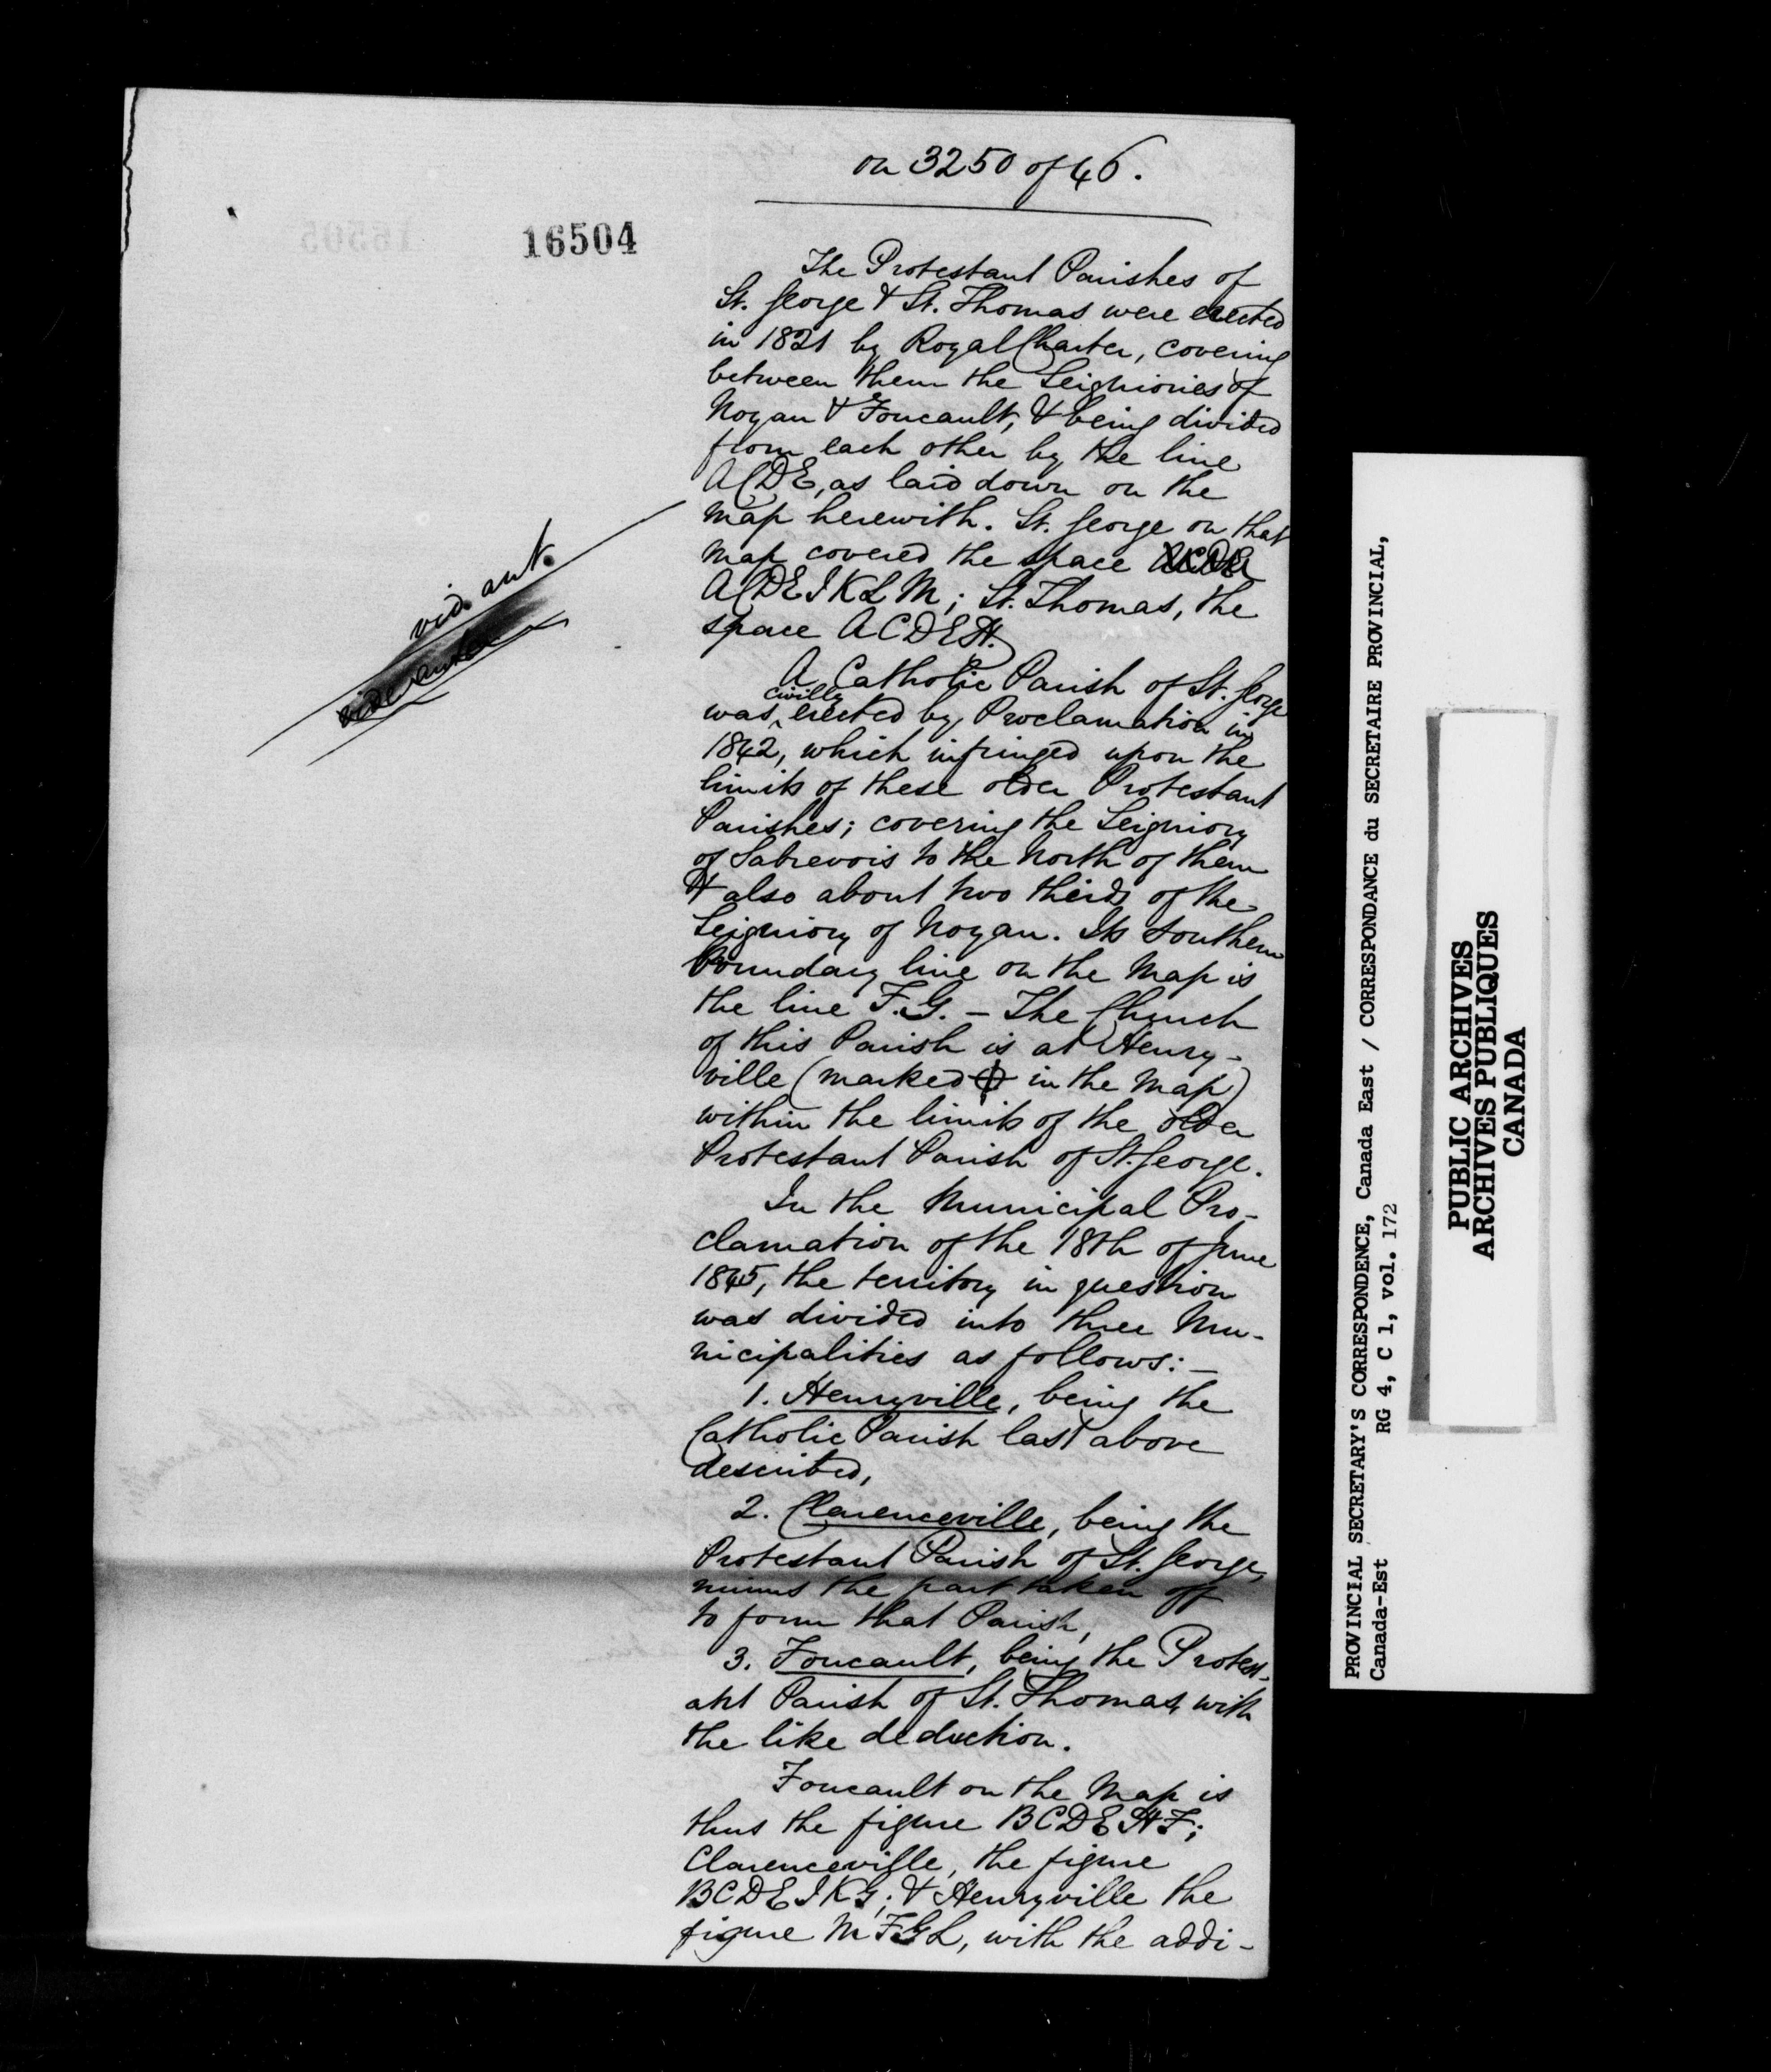 on 3250 of 46.
16504
The Protestant Parishes of
St. George & St. Thomas were erected
in 1821 by Royal Charter, covering
between them the Seigniories of
Noyan & Foucault, & being divided
from each other by the line
ACDE, as laid down on the
map herewith. St. George on that
map covered the space
ACDEIKLM; St. Thomas, the
space ACDEH.
A Catholic Parish of St. George
was civilly erected by Proclamation in
1842, which infringed upon the
limits of these older Protestant
Parishes; covering the Seigniory
of Sabrevois to the North of them
& also about two thirds of the
Seigniory of Noyan. Its Southern
boundary line on the Map is
the line F.G. – The Church
of this Parish is at Henry-
ville (marked in the Map)
within the limits of the older
Protestant Parish of St. George.
In the Municipal Pro-
clamation of the 18th of June
1845, the territory in question
was divided into three Mu-
nicipalities as follows: –
1. Henryville, being the
Catholic Parish last above
described,
2. Clarenceville, being the
Protestant Parish of St. George,
minus the part taken off
to form that Parish,
3. Foucault, being the Protest-
ant Parish of St. Thomas, with
the like deduction.
Foucault on the Map is
thus the figure BCDEHF;
Clarenceville, the figure
BCDEIKG; & Henryville the
figure MFGL, with the addi-
vid. ant.
vide ante
PROVINCIAL SECRETARY'S CORRESPONDENCE, Canada East / CORRESPONDANCE du SECRETAIRE PROVINCIAL,
Canada-Est RG 4, C 1, vol. 172
PUBLIC ARCHIVES
ARCHIVES PUBLIQUES
CANADA